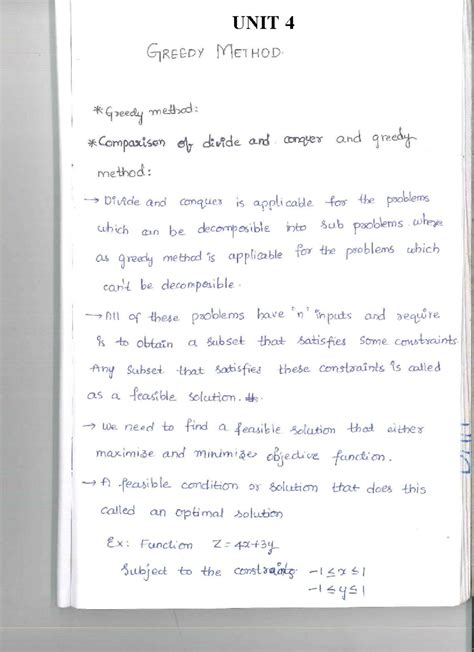 UNIT 4
GREEDY METHOD.
* Greedy method:
* Comparison of divide and conquer and greedy
method:
→ Divide and conquer is applicable for the problems
which can be decomposible into sub problems. where
as greedy method is applicable for the problems which
can't be decomposible.
→ All of these problems have "n" inputs and require
is to obtain a subset that satisfies some constraints
Any subset that satisfies these constraints is called
as a feasible solution.
→ We need to find a feasible solution that either
maximize and minimizes objective function.
→ A feasible condition or solution that does this
called an optimal solution
Ex: Function Z = 4x+3y
Subject to the constraints -1 ≤ x ≤ 1
-1 ≤ y ≤ 1